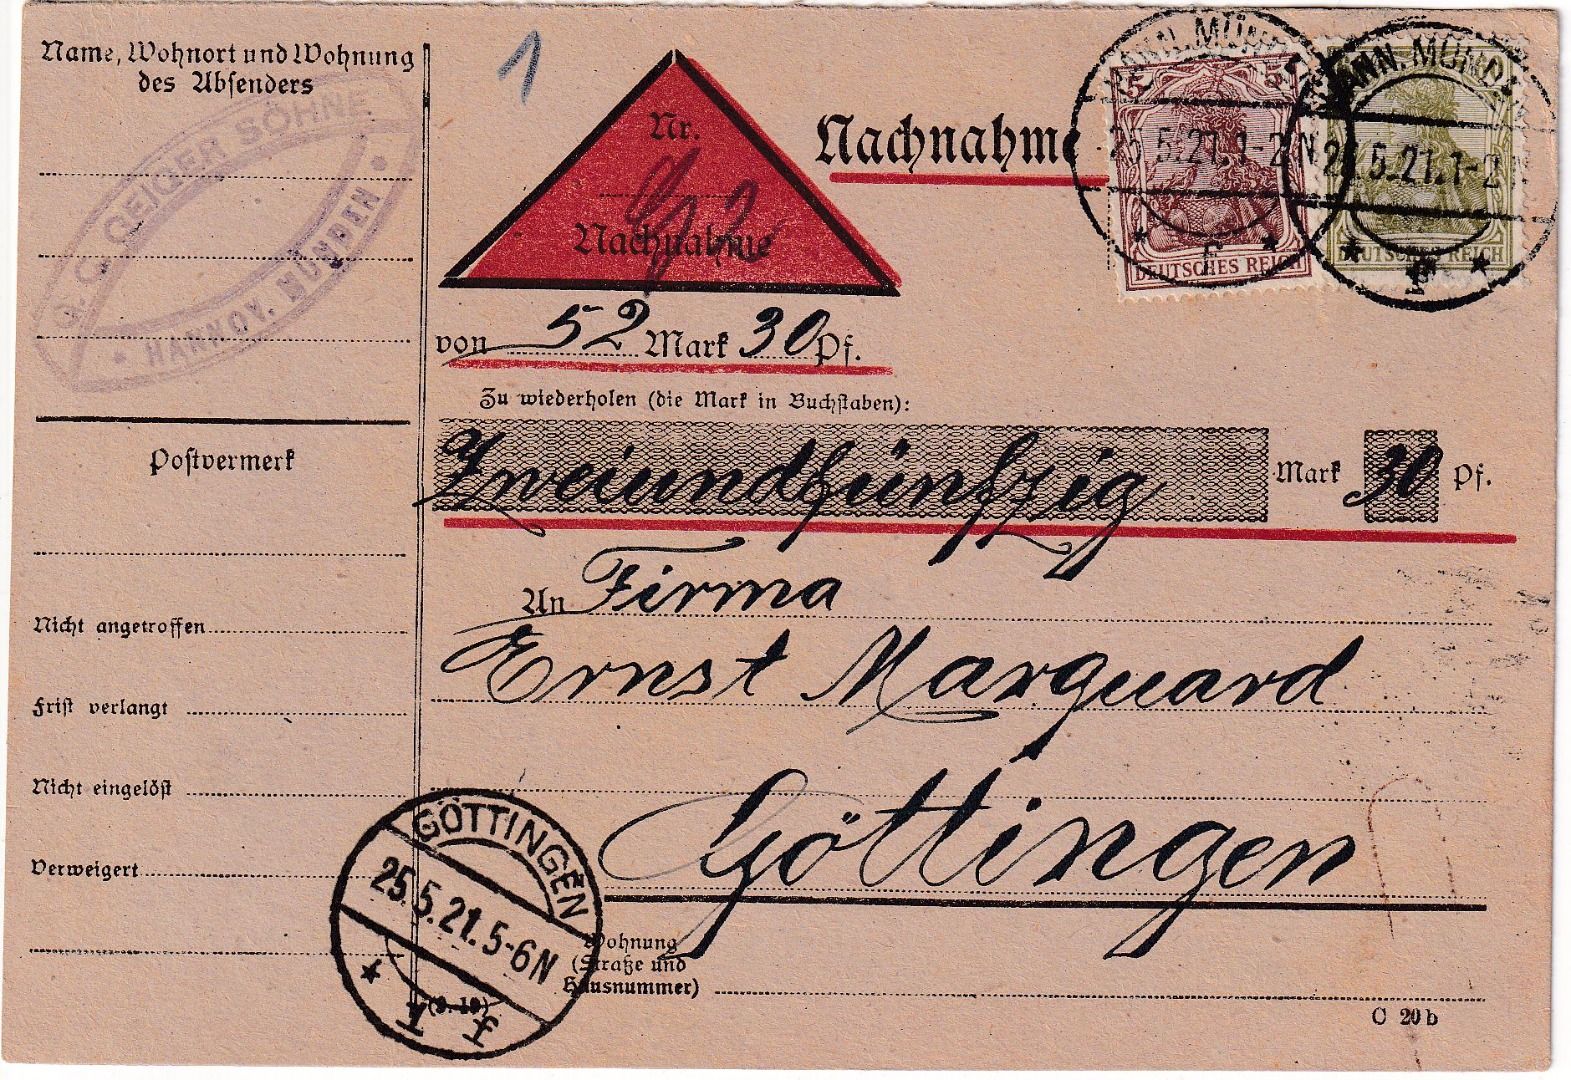 Name, Wohnort und Wohnung
des Absenders
G. C. GEIGER SÖHNE
* HANNOV. MÜNDEN *
1
Nr.
Nachnahme
Nachnahme
HANN. MÜNDEN
25.5.21.1-2N
* f *
5
DEUTSCHES REICH
HANN. MÜNDEN
25.5.21.1-2N
* *
DEUTSCHES REICH
von 52 Mark 30 Pf.
Zu wiederholen (die Mark in Buchstaben):
Zweiundfünfzig Mark 30 Pf.
Postvermerk
An Firma
Nicht angetroffen
Ernst Marquard
Frist verlangt
Göttingen
Nicht eingelöst
Verweigert
GÖTTINGEN
25.5.21.5-6N
* 1 f
Wohnung
(Straße und
Hausnummer)
C 20b